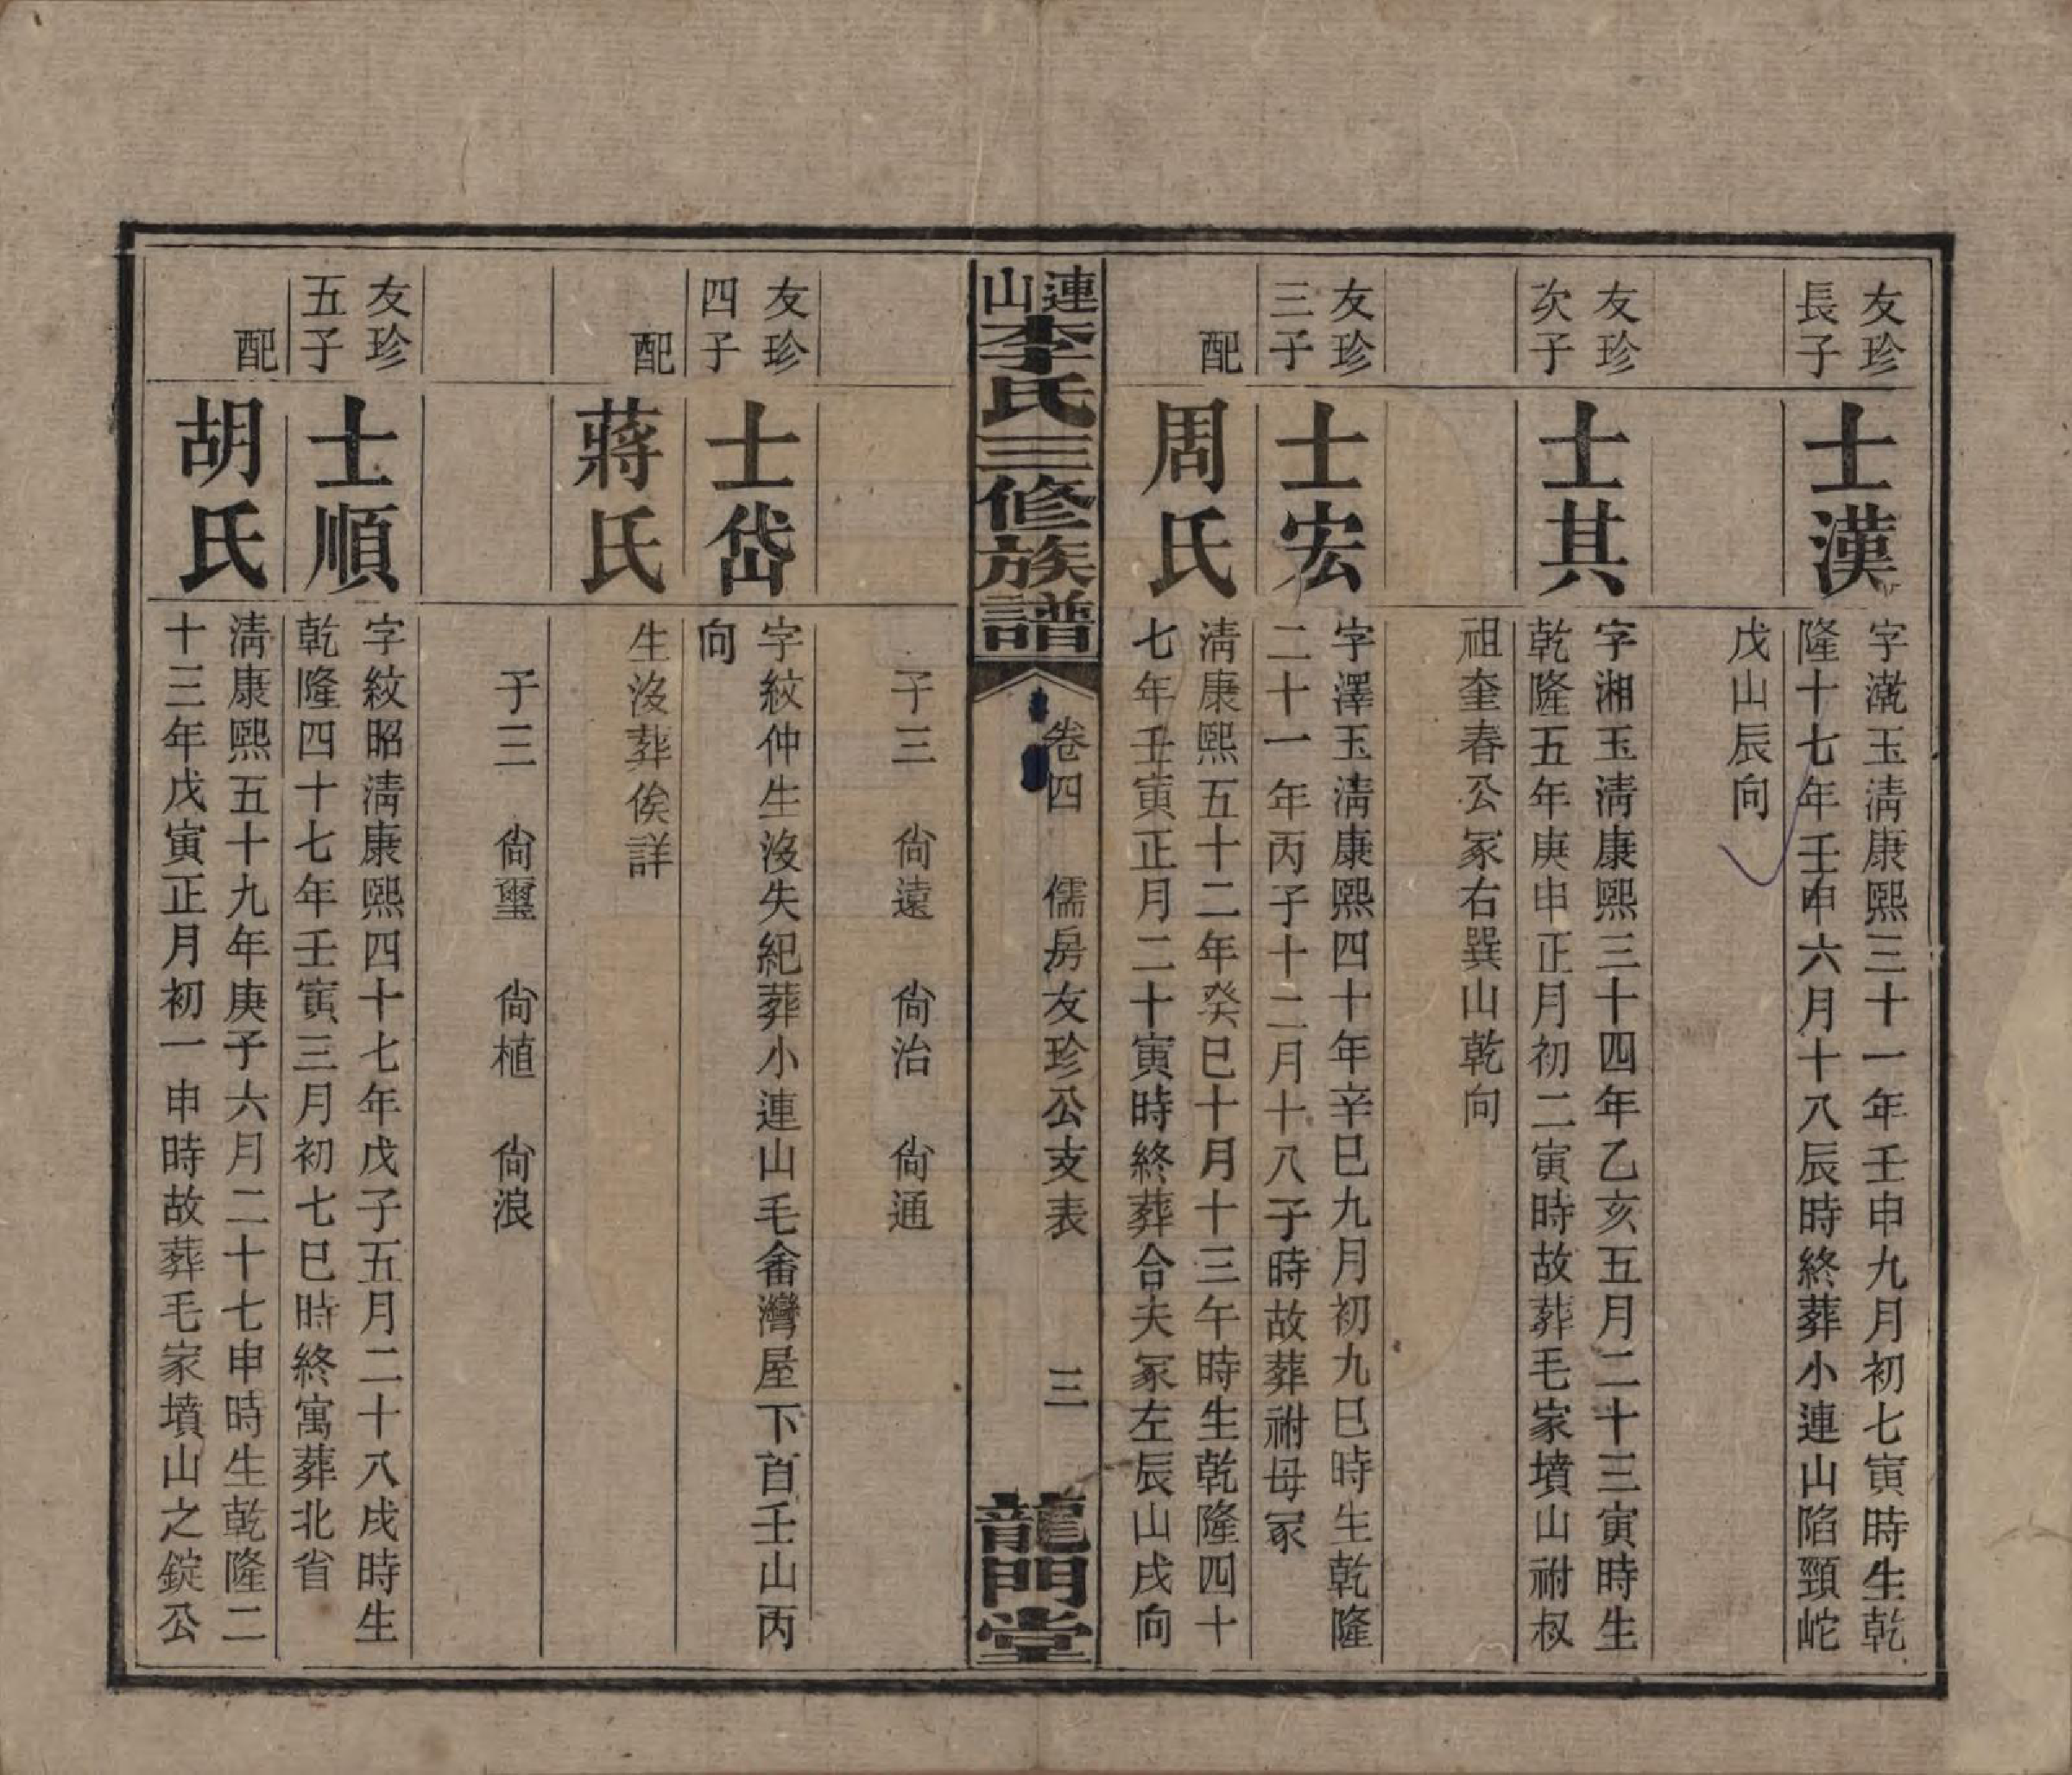 友珍
長子
士漢
字漋玉淸康熙三十一年壬申九月初七寅時生乾
隆十七年壬申六月十八辰時終葬小連山陷頸岮
戊山辰向
友珍
次子
士其
字湘玉淸康熙三十四年乙亥五月二十三寅時生
乾隆五年庚申正月初二寅時故葬毛家墳山祔叔
祖奎春公冢右巽山乾向
友珍
三子
士宏
字澤玉淸康熙四十年辛巳九月初九巳時生乾隆
二十一年丙子十二月十八子時故葬祔母冢
配
周氏
淸康熙五十二年癸巳十月十三午時生乾隆四十
七年壬寅正月二十寅時終葬合夫冢左辰山戌向
連山李氏三修族譜
卷四 儒房友珍公支表 三
龍門堂
子三 尙遠 尙治 尙通
友珍
四子
士岱
字紋仲生沒失紀葬小連山毛畲灣屋下首壬山丙
向
配
蔣氏
生沒葬俟詳
子三 尙璽 尙植 尙浪
友珍
五子
士順
字紋昭淸康熙四十七年戊子五月二十八戌時生
乾隆四十七年壬寅三月初七巳時終寓葬北省
配
胡氏
淸康熙五十九年庚子六月二十七申時生乾隆二
十三年戊寅正月初一申時故葬毛家墳山之錠公